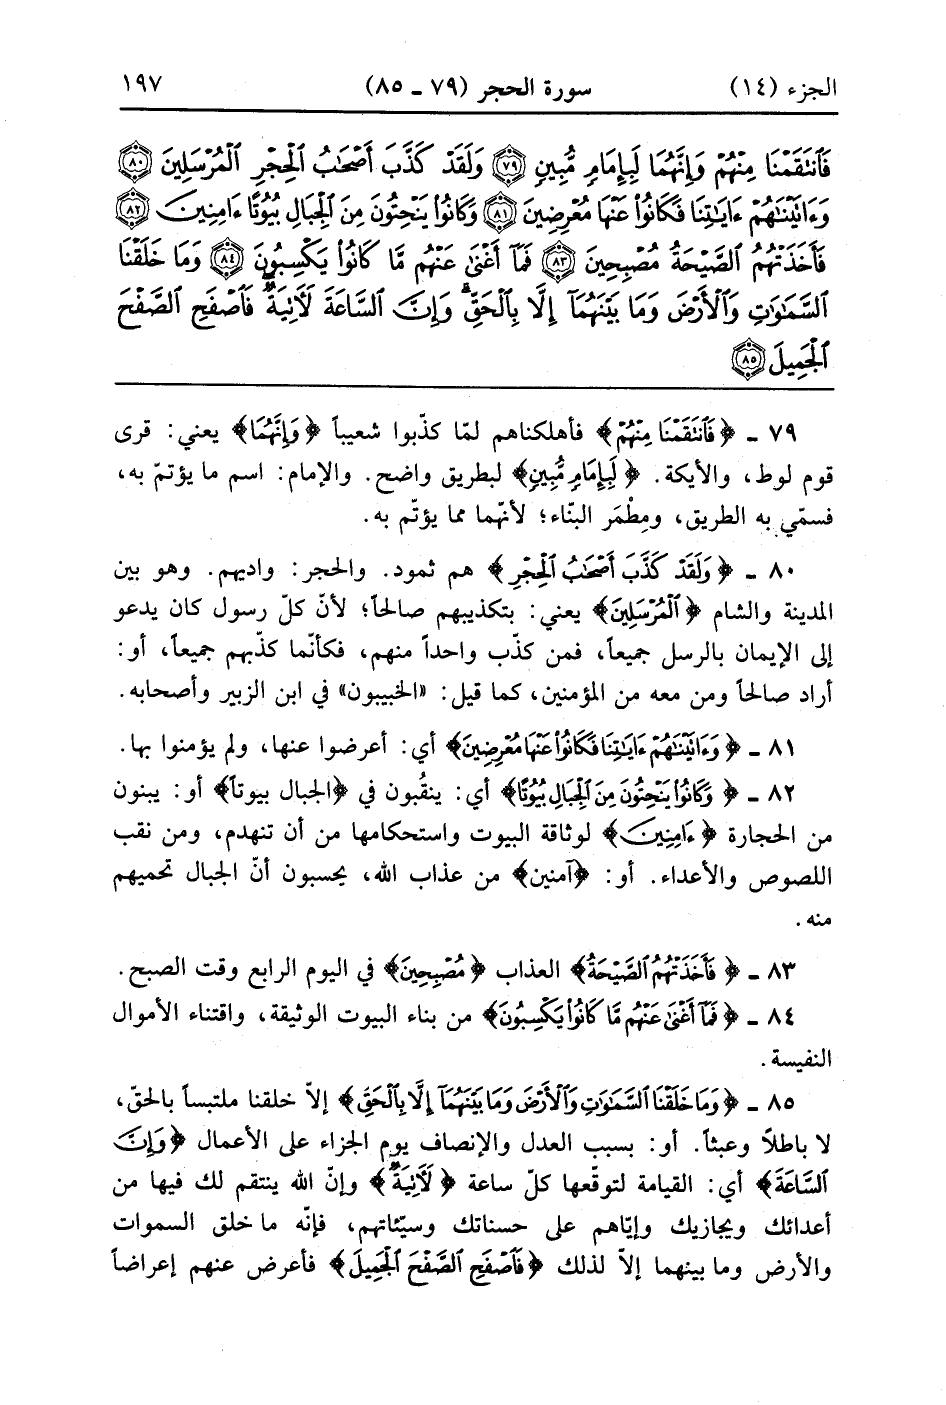 الجزء (١٤) سورة الحجر (٧٩ ـ ٨٥) ١٩٧
فَٱنتَقَمۡنَا مِنۡهُمۡ وَإِنَّهُمَا لَبِإِمَامٖ مُّبِينٖ ٧٩ وَلَقَدۡ كَذَّبَ أَصۡحَٰبُ ٱلۡحِجۡرِ ٱلۡمُرۡسَلِينَ ٨٠
وَءَاتَيۡنَٰهُمۡ ءَايَٰتِنَا فَكَانُواْ عَنۡهَا مُعۡرِضِينَ ٨١ وَكَانُواْ يَنۡحِتُونَ مِنَ ٱلۡجِبَالِ بُيُوتًا ءَامِنِينَ ٨٢
فَأَخَذَتۡهُمُ ٱلصَّيۡحَةُ مُصۡبِحِينَ ٨٣ فَمَآ أَغۡنَىٰ عَنۡهُم مَّا كَانُواْ يَكۡسِبُونَ ٨٤ وَمَا خَلَقۡنَا
ٱلسَّمَٰوَٰتِ وَٱلۡأَرۡضَ وَمَا بَيۡنَهُمَآ إِلَّا بِٱلۡحَقِّۗ وَإِنَّ ٱلسَّاعَةَ لَأٓتِيَةٞۖ فَٱصۡفَحِ ٱلصَّفۡحَ
ٱلۡجَمِيلَ ٨٥
٧٩ ـ ﴿فَٱنتَقَمۡنَا مِنۡهُمۡ﴾ فأهلكناهم لمّا كذّبوا شعيباً ﴿وَإِنَّهُمَا﴾ يعني: قرى
قوم لوط، والأيكة. ﴿لَبِإِمَامٖ مُّبِينٖ﴾ لبطريق واضح. والإمام: اسم ما يؤتمّ به،
فسمّي به الطريق، ومِطْمَر البنّاء؛ لأنّهما مما يؤتّم به.
٨٠ ـ ﴿وَلَقَدۡ كَذَّبَ أَصۡحَٰبُ ٱلۡحِجۡرِ﴾ هم ثمود. والحجر: واديهم. وهو بين
المدينة والشام ﴿ٱلۡمُرۡسَلِينَ﴾ يعني: بتكذيبهم صالحاً؛ لأنّ كلّ رسول كان يدعو
إلى الإيمان بالرسل جميعاً، فمن كذّب واحداً منهم، فكأنّما كذّبهم جميعاً، أو:
أراد صالحاً ومن معه من المؤمنين، كما قيل: «الخبيبون» في ابن الزبير وأصحابه.
٨١ ـ ﴿وَءَاتَيۡنَٰهُمۡ ءَايَٰتِنَا فَكَانُواْ عَنۡهَا مُعۡرِضِينَ﴾ أي: أعرضوا عنها، ولم يؤمنوا بها.
٨٢ ـ ﴿وَكَانُواْ يَنۡحِتُونَ مِنَ ٱلۡجِبَالِ بُيُوتًا﴾ أي: ينقُبون في ﴿الجبال بيوتاً﴾ أو: يبنون
من الحجارة ﴿ءَامِنِينَ﴾ لوثاقة البيوت واستحكامها من أن تنهدم، ومن نقب
اللصوص والأعداء. أو: ﴿آمنين﴾ من عذاب الله، يحسبون أنّ الجبال تحميهم
منه.
٨٣ ـ ﴿فَأَخَذَتۡهُمُ ٱلصَّيۡحَةُ﴾ العذاب ﴿مُصۡبِحِينَ﴾ في اليوم الرابع وقت الصبح.
٨٤ ـ ﴿فَمَآ أَغۡنَىٰ عَنۡهُم مَّا كَانُواْ يَكۡسِبُونَ﴾ من بناء البيوت الوثيقة، واقتناء الأموال
النفيسة.
٨٥ ـ ﴿وَمَا خَلَقۡنَا ٱلسَّمَٰوَٰتِ وَٱلۡأَرۡضَ وَمَا بَيۡنَهُمَآ إِلَّا بِٱلۡحَقِّ﴾ إلاّ خلقنا ملتبساً بالحقّ،
لا باطلاً وعبثاً. أو: بسبب العدل والإنصاف يوم الجزاء على الأعمال ﴿وَإِنَّ
ٱلسَّاعَةَ﴾ أي: القيامة لتوقّعها كلّ ساعة ﴿لَأٓتِيَةٞۖ﴾ وإنّ الله ينتقم لك فيها من
أعدائك ويجازيك وإيّاهم على حسناتك وسيّئاتهم، فإنّه ما خلق السموات
والأرض وما بينهما إلاّ لذلك ﴿فَٱصۡفَحِ ٱلصَّفۡحَ ٱلۡجَمِيلَ﴾ فأعرض عنهم إعراضاً